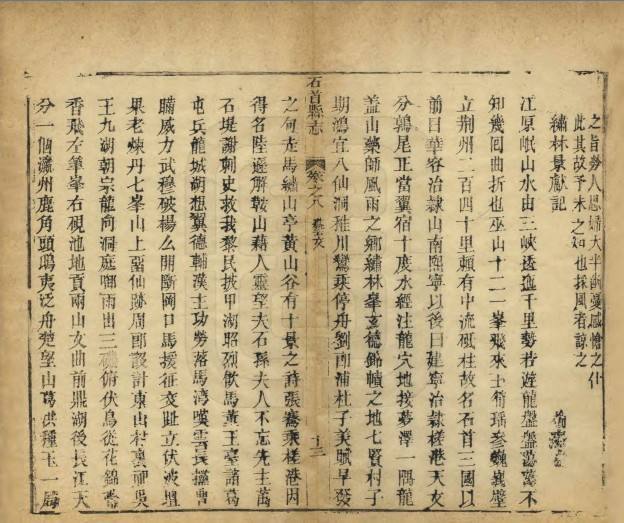 之旨勞人思婦大半詠憂感愴之什
此其故予未之知也採風者諒之
繡林景獻記
江原岷山水由三峽透迤千里勢若遊龍盤盤蕩蕩不
知幾回曲折也巫山十二峯飛來士簡瑤參巍峩壁
立荆州二百四十里賴有中流砥柱故名石首三國以
前曰華容治隷山南熙寧以後曰建寧治隷槎港天文
分鶉尾正當翼宿十度水經注龍穴地接夢澤一隅龍
蓋山藥師風雨之鄉繡林峯玄德錦幛之地七賢村子
期鴻宜八仙洞稚川鸞乘停舟劉郎浦杜子美賦早發
之句走馬繡山亭黃山谷有十景之詩張騫乘槎港因
得名陸遜解鞍山藉人靈望夫石孫夫人不忘先主萬
石堤謝刺史救我黎民披甲湖昭烈飲馬黃王臺諸葛
屯兵龍城湖想翼德輔漢主功勞落馬湾嘆雲長擒曹
瞞威力武穆破楊么開斷岡口馬援征交趾立伏波壇
果老煉丹七峯山上留仙跡周郎設計東山村裏神吳
王九湖朝宗龍向洞庭啣雨出三磯俯伏鳥從花錦帶
香飛左筆峯右硯池地貢兩山文曲前鼎湖後長江天
分一個瀛州鹿角頭鴟夷泛舟楚望山葛洪種玉一局
石首縣志
卷之八
藝文
十三